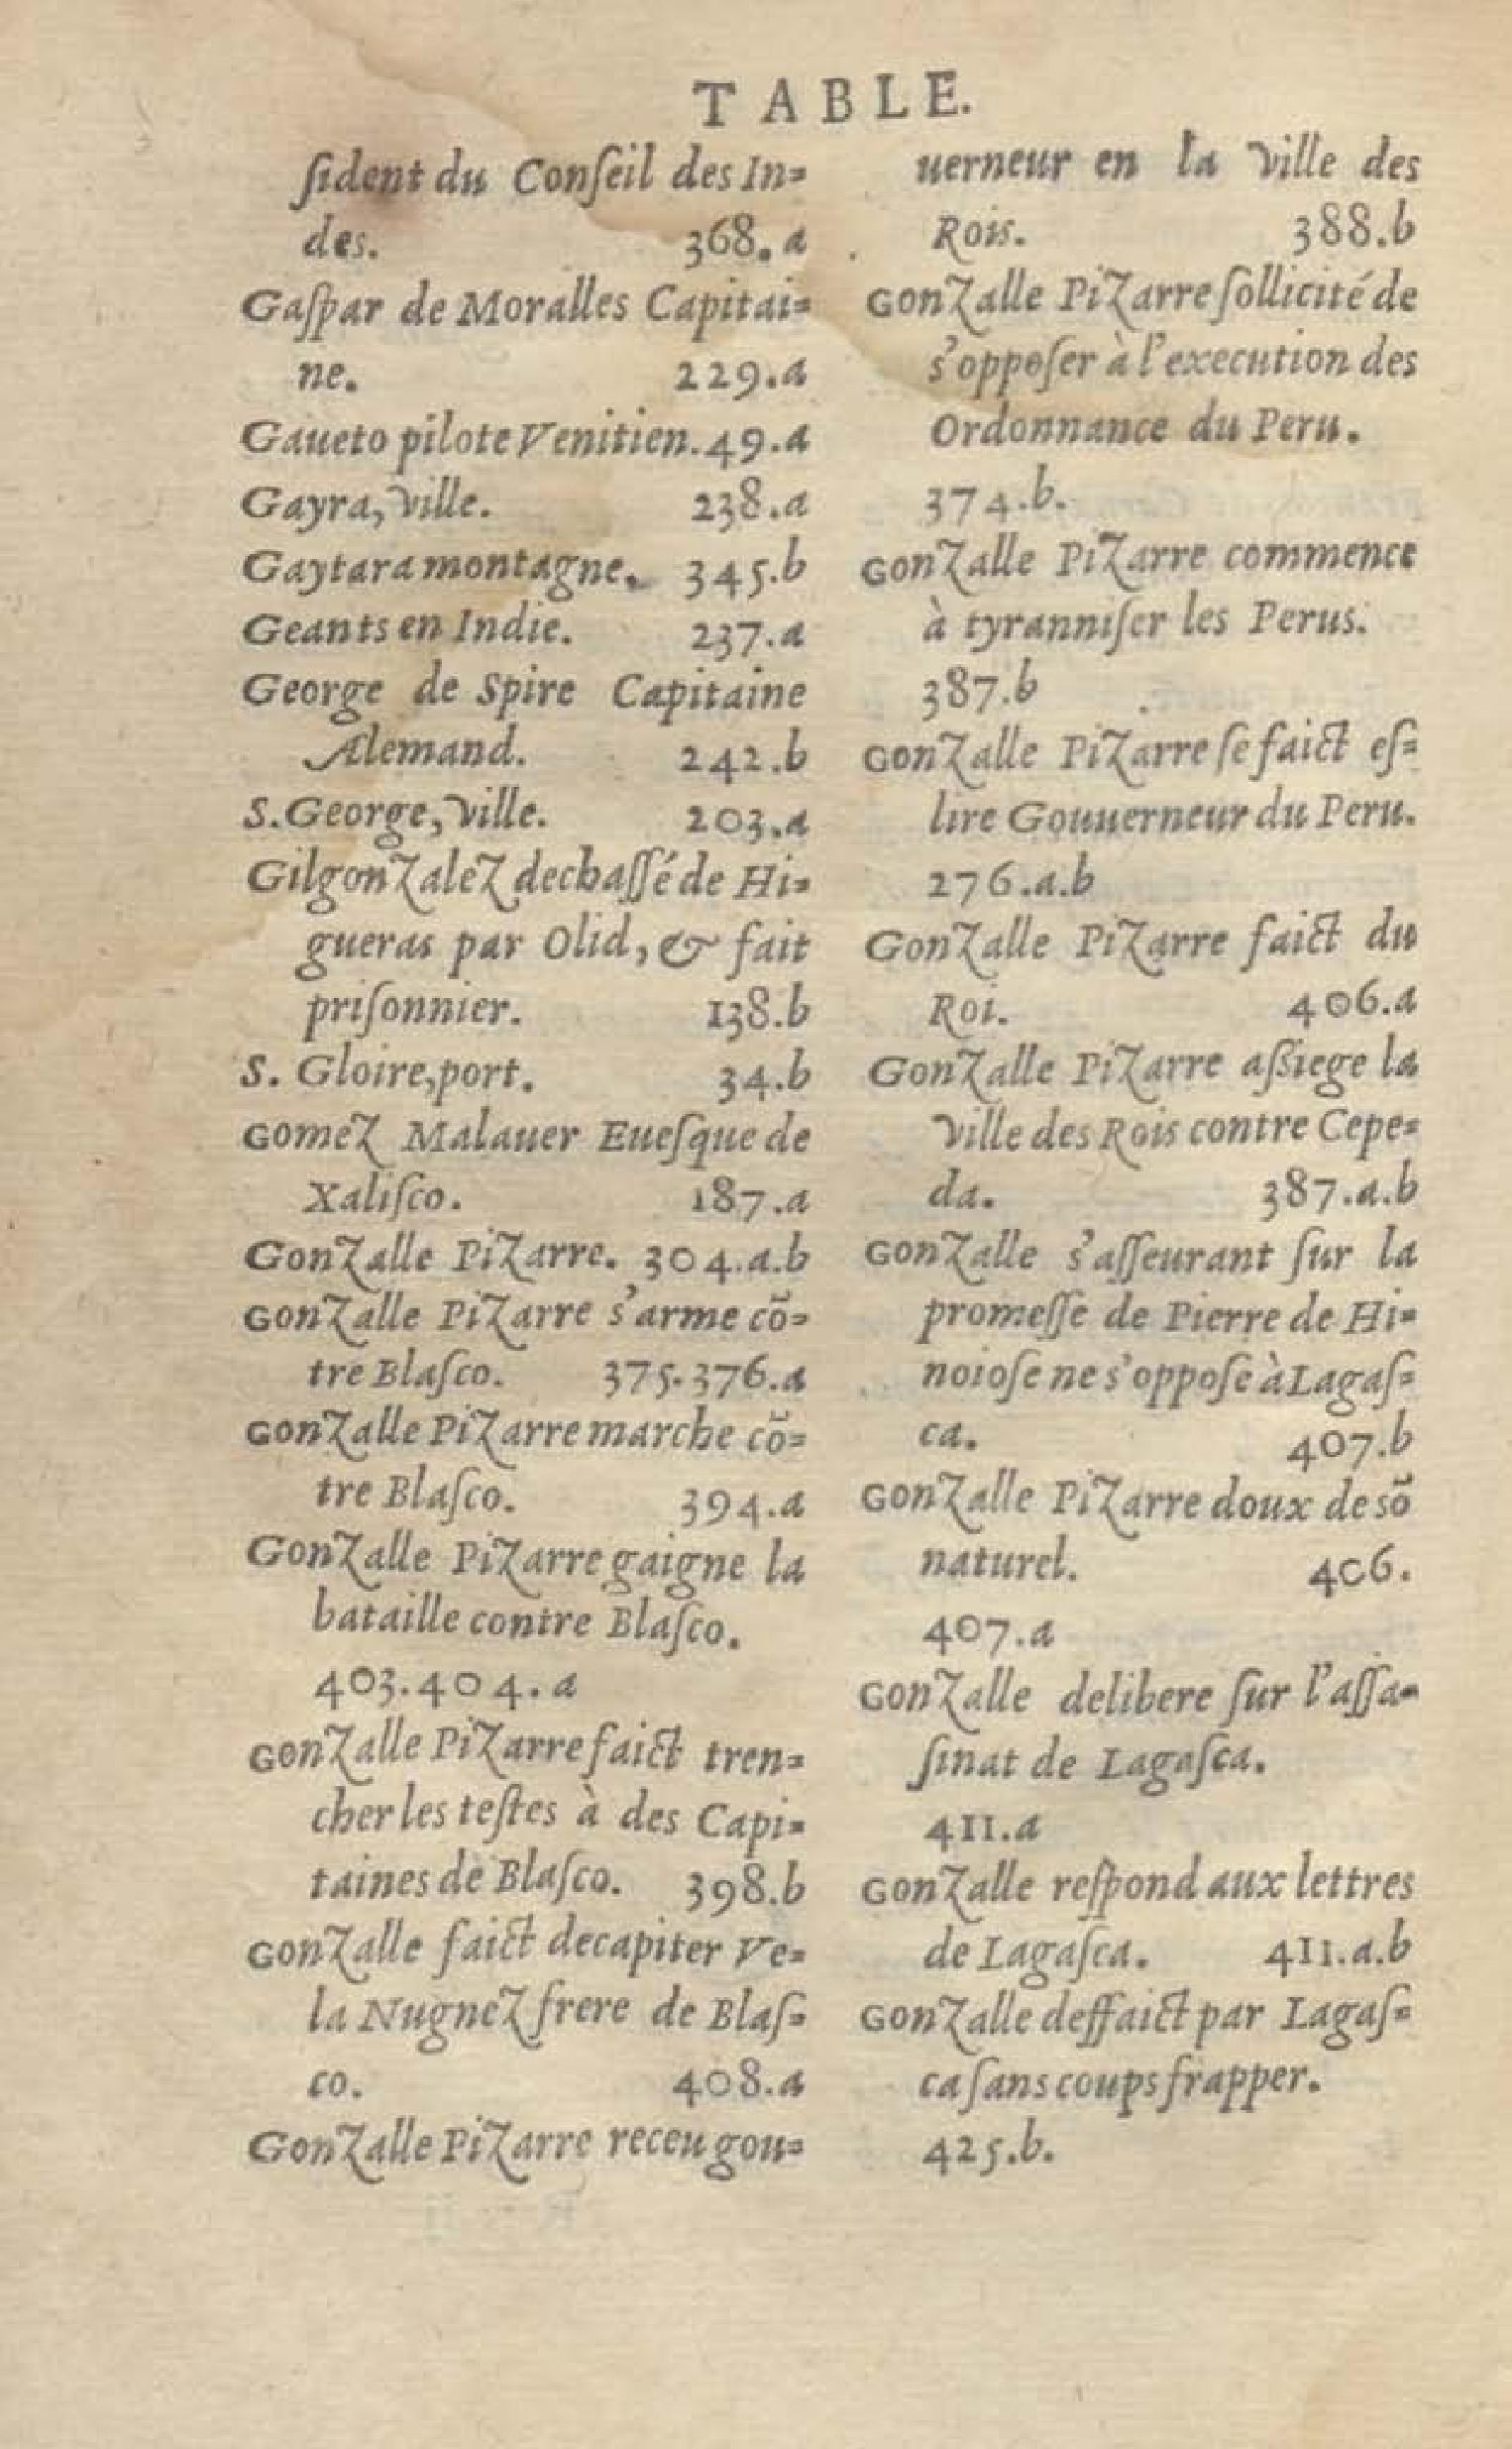 TABLE.
ſident du Conſeil des In=
des. 368. a
Gaſpar de Moralles Capitai=
ne. 229.a
Gaueto pilote Venitien. 49.a
Gayra, ville. 238.a
Gaytara montagne. 345.b
Geants en Indie. 237.a
George de Spire Capitaine
Alemand. 242.b
S. George, ville. 203.a
GilgonZaleZ dechaſſé de Hi=
gueras par Olid, & fait
priſonnier. 138.b
S. Gloire, port. 34.b
GomeZ Malauer Eueſque de
Xaliſco. 187.a
GonZalle PiZarre. 304.a.b
GonZalle PiZarre s'arme cō=
tre Blaſco. 375.376.a
GonZalle PiZarre marche cō=
tre Blaſco. 394.a
GonZalle PiZarre gaigne la
bataille contre Blaſco.
403.404.a
GonZalle PiZarre faict tren=
cher les teſtes à des Capi=
taines de Blaſco. 398.b
GonZalle faict decapiter Ve=
la NugneZ frere de Blaſ=
co. 408.a
GonZalle PiZarre receu gou=
uerneur en la ville des
Rois. 388.b
GonZalle PiZarre ſollicité de
s'oppoſer à l'execution des
Ordonnance du Peru.
374.b.
GonZalle PiZarre commence
à tyranniſer les Perus.
387.b
GonZalle PiZarre ſe faict eſ=
lire Gouuerneur du Peru.
276.a.b
GonZalle PiZarre faict du
Roi. 406.a
GonZalle PiZarre aßiege la
ville des Rois contre Cepe=
da. 387.a.b
GonZalle s'aſſeurant ſur la
promeſſe de Pierre de Hi=
noioſe ne s'oppoſe à Lagaſ=
ca. 407.b
GonZalle PiZarre doux de sō
naturel. 406.
407.a
GonZalle delibere ſur l'aſſa=
ſinat de Lagaſca.
411.a
GonZalle reſpond aux lettres
de Lagaſca. 411.a.b
GonZalle deffaict par Lagaſ=
ca ſans coups frapper.
425.b.